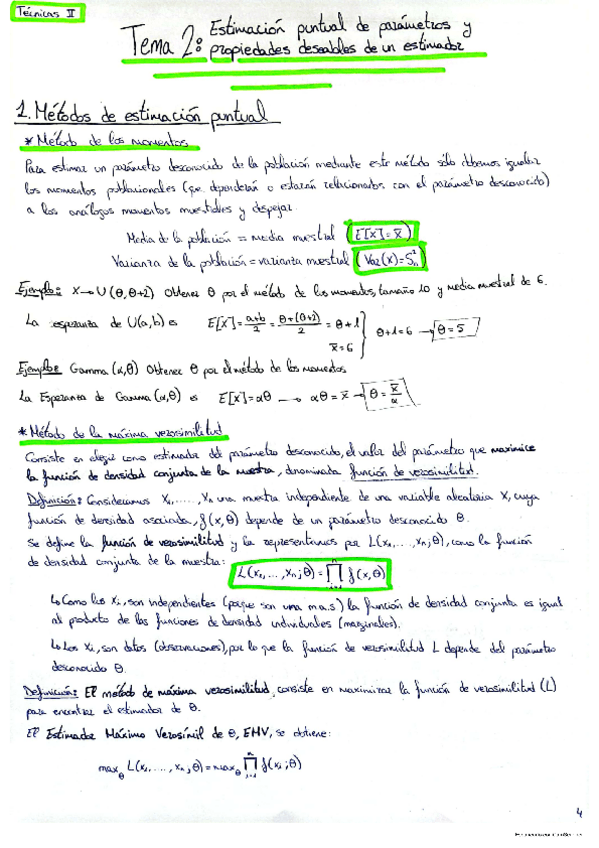 Técnicas II
Tema 2: Estimación puntual de parámetros y
propiedades deseables de un estimador
1. Métodos de estimación puntual
* Método de los momentos
Para estimar un parámetro desconocido de la población mediante este método sólo debemos igualar
los momentos poblacionales (que dependerán o estarán relacionados con el parámetro desconocido)
a los análogos momentos muestrales y despejar.
Media de la población = media muestral (E[X]=x̄)
Varianza de la población = varianza muestral (Var(X)=S²ₙ)
Ejemplo: X→U(θ,θ+2) Obtener θ por el método de los momentos, tamaño 10 y media muestral de 6.
La esperanza de U(a,b) es E[X]=a+b/2=θ+(θ+2)/2=θ+1 } θ+1=6 → θ=5
x̄=6
Ejemplo: Gamma (α,θ) Obtener θ por el método de los momentos
La Esperanza de Gamma (α,θ) es E[X]=αθ → αθ=x̄ → θ=x̄/α
* Método de la máxima verosimilitud
Consiste en elegir como estimador del parámetro desconocido, el valor del parámetro que maximice
la función de densidad conjunta de la muestra, denominada función de verosimilitud.
Definición: Consideramos X₁,...,Xₙ una muestra independiente de una variable aleatoria X, cuya
función de densidad asociada, f(x,θ) depende de un parámetro desconocido θ.
Se define la función de verosimilitud y la representamos por L(x₁,...,xₙ;θ), como la función
de densidad conjunta de la muestra: L(x₁,...,xₙ;θ)=∏ f(x,θ)
↳ Como los Xᵢ, son independientes (porque son una m.a.s) la función de densidad conjunta es igual
al producto de las funciones de densidad individuales (marginales).
↳ Los Xᵢ, son datos (observaciones), por lo que la función de verosimilitud L depende del parámetro
desconocido θ.
Definición: El método de máxima verosimilitud, consiste en maximizar la función de verosimilitud (L)
para encontrar el estimador de θ.
El Estimador Máximo Verosímil de θ, EMV, se obtiene:
max_θ L(x₁,...,xₙ;θ)=max_θ ∏ f(xᵢ;θ)
4